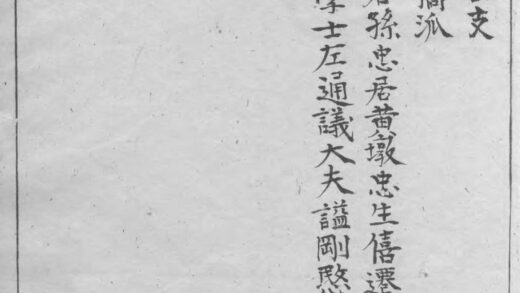 支
派
孫忠居黄墩忠生僖遷
學士左通議大夫謚剛愍